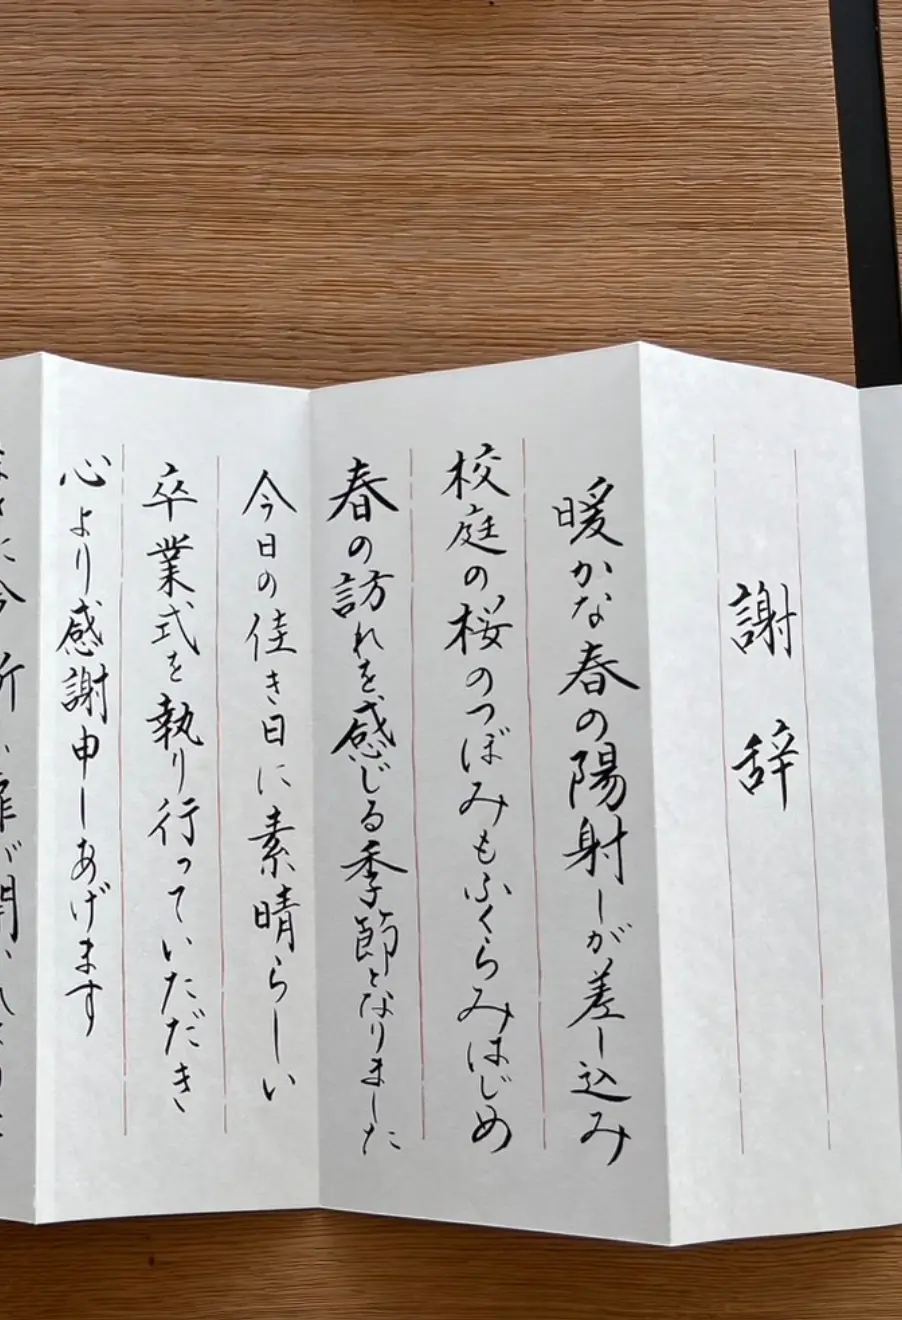 謝辞
暖かな春の陽射しが差し込み
校庭の桜のつぼみもふくらみはじめ
春の訪れを感じる季節となりました
今日の佳き日に素晴らしい
卒業式を執り行っていただき
心より感謝申しあげます